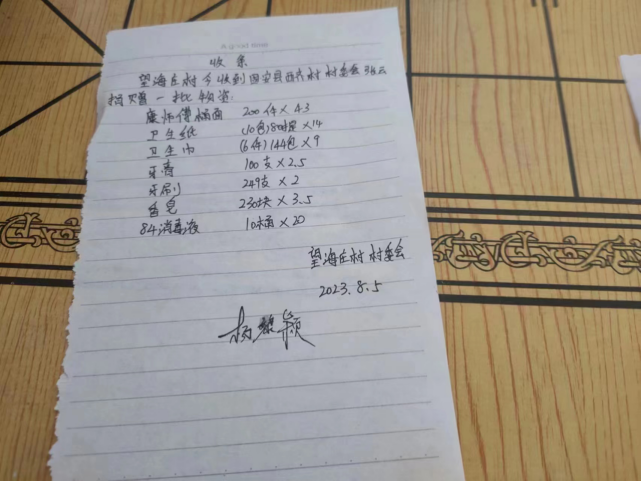 A good time
收条
望海庄村今收到固安县西 村 村委会张云
捐赠一批物资:
康师傅桶面 200件×43
卫生纸 (10包)80提×14
卫生巾 (6件)144包×9
牙膏 100支×2.5
牙刷 249支×2
香皂 230块×3.5
84消毒液 10桶×20
望海庄村 村委会
2023.8.5
杨 颖